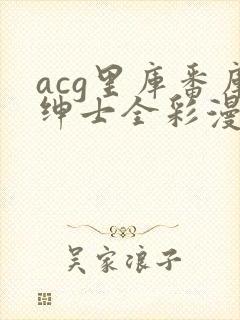 acg里库番库
绅士全彩漫
吴家浪子